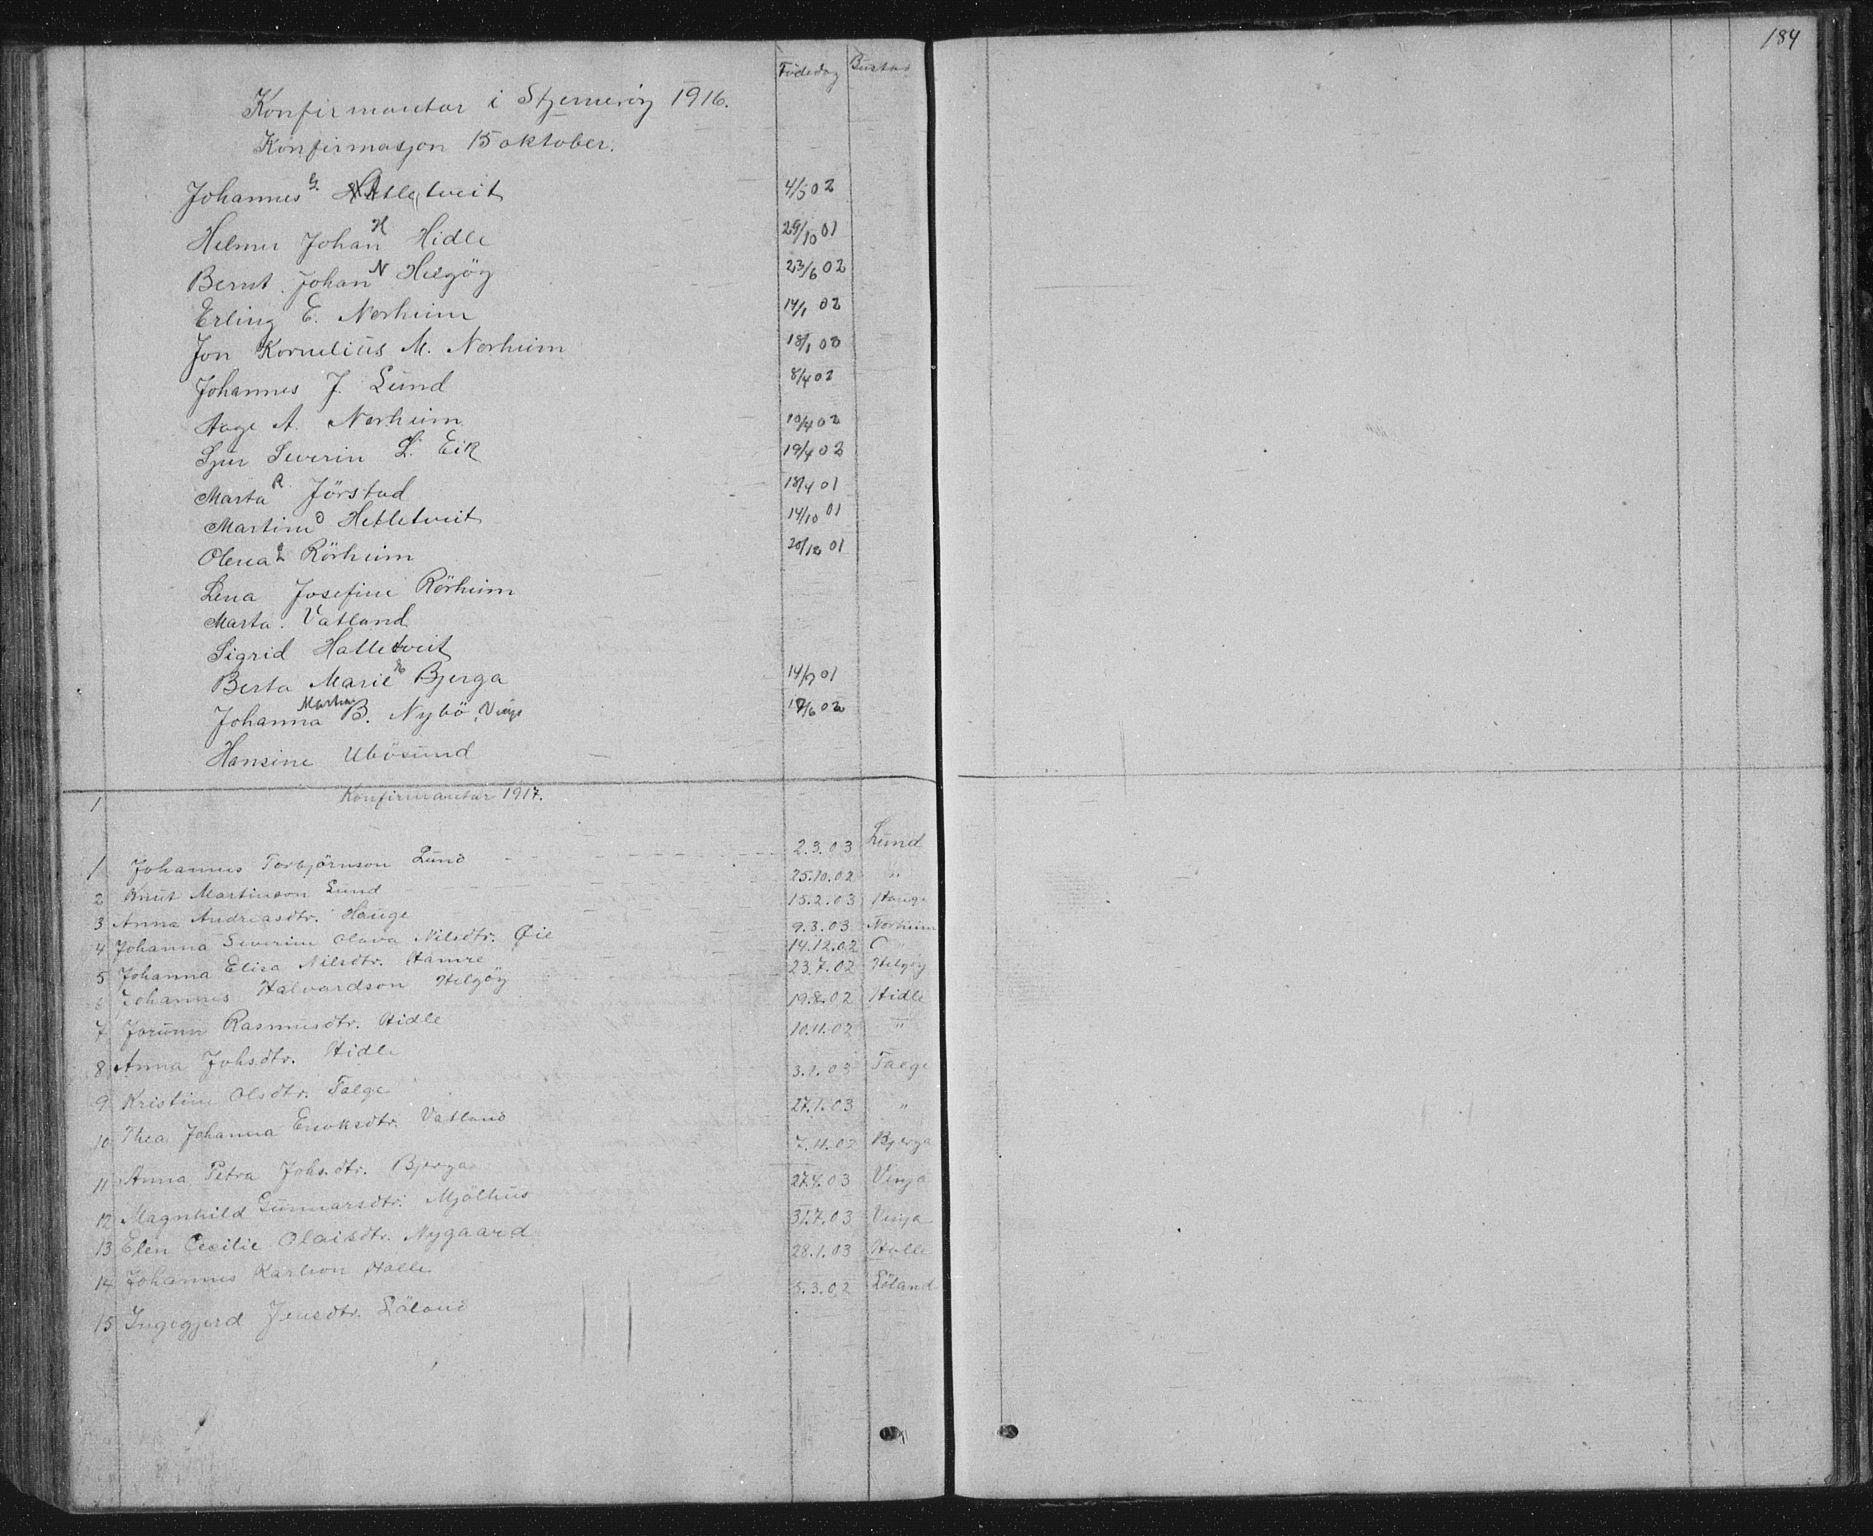 184
Födedag Bustad
Konfirmantar i Stjerneröy 1916.
Konfirmasjon 15 oktober.
Johannes G. Hetletveit 4/5 02
Helmer Johan H Hidle 29/10 01
Bernt Johan N Helgöy 23/6 02
Erling E. Norheim 14/1 02
Jon Kornelius M. Norheim 18/1 02
Johannes J. Lund 8/4 02
Aage A. Norheim 10/4 02
Sjur Severin L. Eik 19/4 02
Marta R Jörstad 18/4 01
Martine O Hetletveit 14/10 01
Olena Rörheim 20/12 01
Lena Josefine Rörheim
Marta Vatland
Sigrid Halletveit
Berta Marie Bjerga 14/9 01
Johanna Martha B. Nybö, Vinje 17/6 02
Hansine Ubösund
1 Konfirmantar 1917.
1 Johannes Torbjörnson Lund 2.3.03 Lund
2 Knut Martinson Lund 25.10.02 "
3 Anna Andreasdtr. Hauge 15.2.03 Hauge
4 Johanna Severine Olava Nilsdtr. Öie 9.3.03 Norheim
5 Johanna Elisa Nilsdtr. Hamre 14.12.02 "
6 Johannes Halvardson Helgöy 23.7.02 Helgöy
7 Jorunn Rasmusdtr. Hidle 19.8.02 Hidle
8 Anna Johsdtr. Hidle 10.11.02 "
9 Kristine Olsdtr. Talge 3.1.03 Talge
10 Thea Johanna Enoksdtr. Vatland 27.1.03 "
11 Anna Petra Johsdtr. Bjerga 7.11.02 Bjerga
12 Magnhild Gunnarsdtr. Mjölhus 27.4.03 Vinja
13 Elen Cecilie Olaisdtr. Nygaard 31.7.03 Vinja
14 Johannes Karlson Halle 28.1.03 Halle
15 Ingegjerd Jensdtr. Löland 5.3.02 Löland